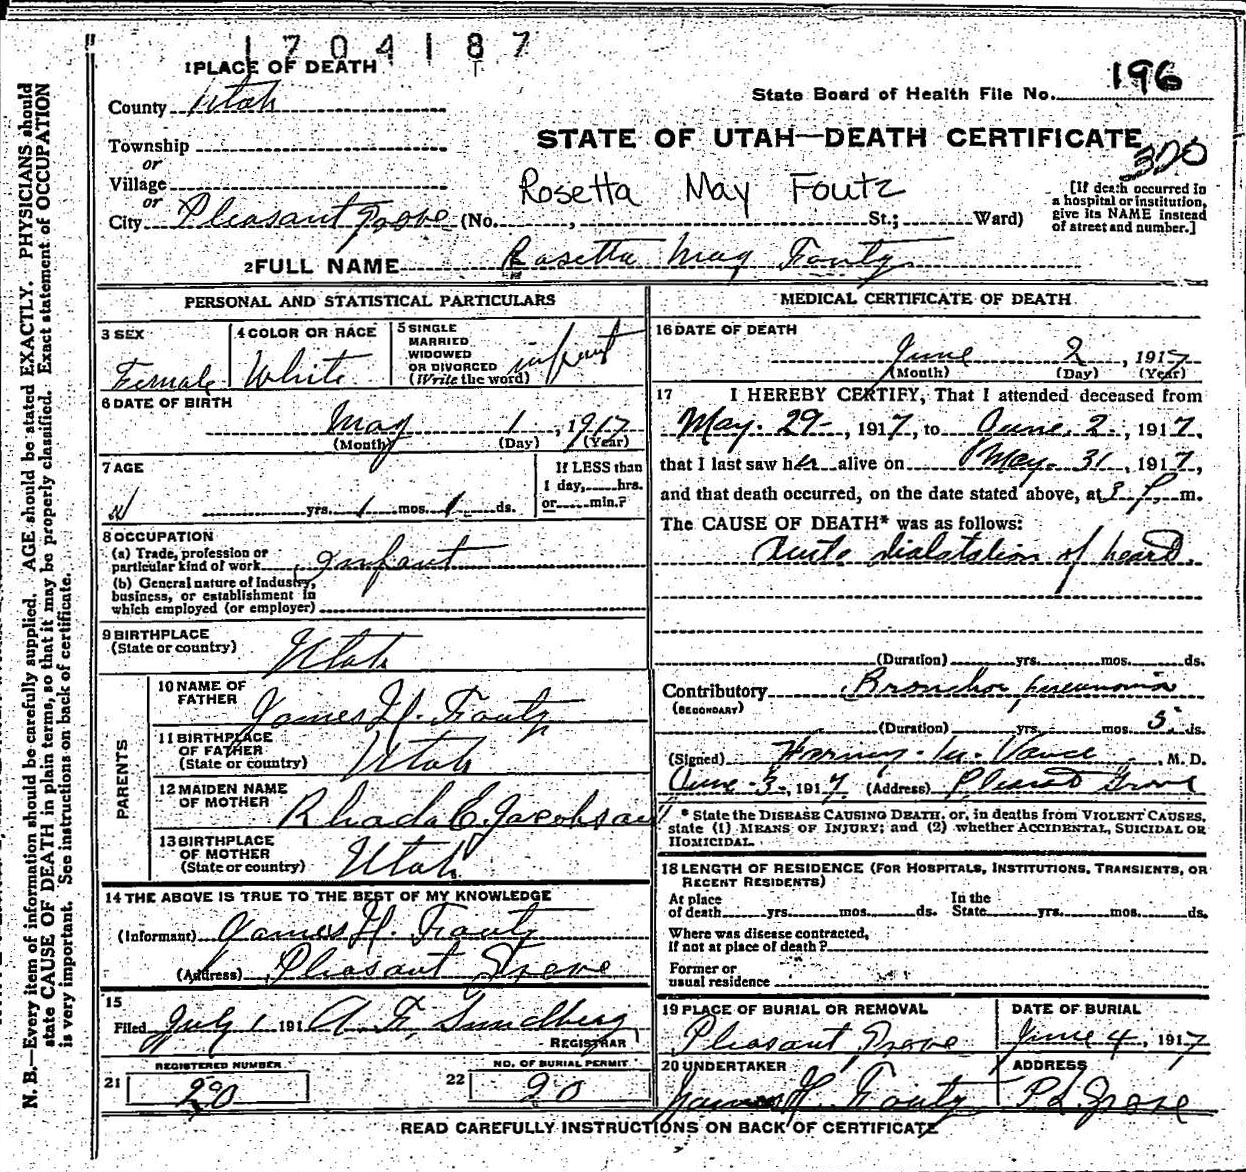 1704187
1 PLACE OF DEATH
196
County Utah
State Board of Health File No.
Township
STATE OF UTAH—DEATH CERTIFICATE
or
320
Village
Rosetta May Foutz
or
City Pleasant Grove (No. , St.; Ward)
[If death occurred in
a hospital or institution,
give its NAME instead
of street and number.]
2 FULL NAME Rosetta May Foutz
PERSONAL AND STATISTICAL PARTICULARS
3 SEX
Female
4 COLOR OR RACE
White
5 SINGLE
MARRIED
WIDOWED
OR DIVORCED
(Write the word)
infant
6 DATE OF BIRTH
May 1, 1917
(Month) (Day) (Year)
7 AGE
yrs. 1 mos. 1 ds.
If LESS than
1 day, hrs.
or min.?
8 OCCUPATION
(a) Trade, profession or
particular kind of work Infant
(b) General nature of industry,
business, or establishment in
which employed (or employer)
9 BIRTHPLACE
(State or country) Utah
PARENTS
10 NAME OF
FATHER
James H. Foutz
11 BIRTHPLACE
OF FATHER
(State or country) Utah
12 MAIDEN NAME
OF MOTHER Rhoda E. Jacobson
13 BIRTHPLACE
OF MOTHER
(State or country) Utah
14 THE ABOVE IS TRUE TO THE BEST OF MY KNOWLEDGE
(Informant) James H. Foutz
(Address) Pleasant Grove
15
Filed July 1 191 A F Gundberg
REGISTRAR
REGISTERED NUMBER
21 20
NO. OF BURIAL PERMIT
22 20
MEDICAL CERTIFICATE OF DEATH
16 DATE OF DEATH
June 2, 1917
(Month) (Day) (Year)
17 I HEREBY CERTIFY, That I attended deceased from
May. 29-, 1917, to June. 2., 1917,
that I last saw her alive on May. 31, 1917,
and that death occurred, on the date stated above, at 3 P. m.
The CAUSE OF DEATH* was as follows:
Acute dialatation of heart.
(Duration) yrs. mos. ds.
Contributory Broncho pneumonia
(SECONDARY)
(Duration) yrs. mos. 5. ds.
(Signed) M. Vance, M. D.
June-3-, 1917. (Address) Pleasant Grove
* State the DISEASE CAUSING DEATH, or, in deaths from VIOLENT CAUSES,
state (1) MEANS OF INJURY; and (2) whether ACCIDENTAL, SUICIDAL OR
HOMICIDAL.
18 LENGTH OF RESIDENCE (FOR HOSPITALS, INSTITUTIONS, TRANSIENTS, OR
RECENT RESIDENTS)
At place
of death yrs. mos. ds.
In the
State yrs. mos. ds.
Where was disease contracted,
if not at place of death?
Former or
usual residence
19 PLACE OF BURIAL OR REMOVAL
Pleasant Grove
DATE OF BURIAL
June 4, 1917
20 UNDERTAKER
James H. Foutz
ADDRESS
Pl. Grove
READ CAREFULLY INSTRUCTIONS ON BACK OF CERTIFICATE
N. B.—Every item of information should be carefully supplied. AGE should be stated EXACTLY. PHYSICIANS should
state CAUSE OF DEATH in plain terms, so that it may be properly classified. Exact statement of OCCUPATION
is very important. See instructions on back of certificate.